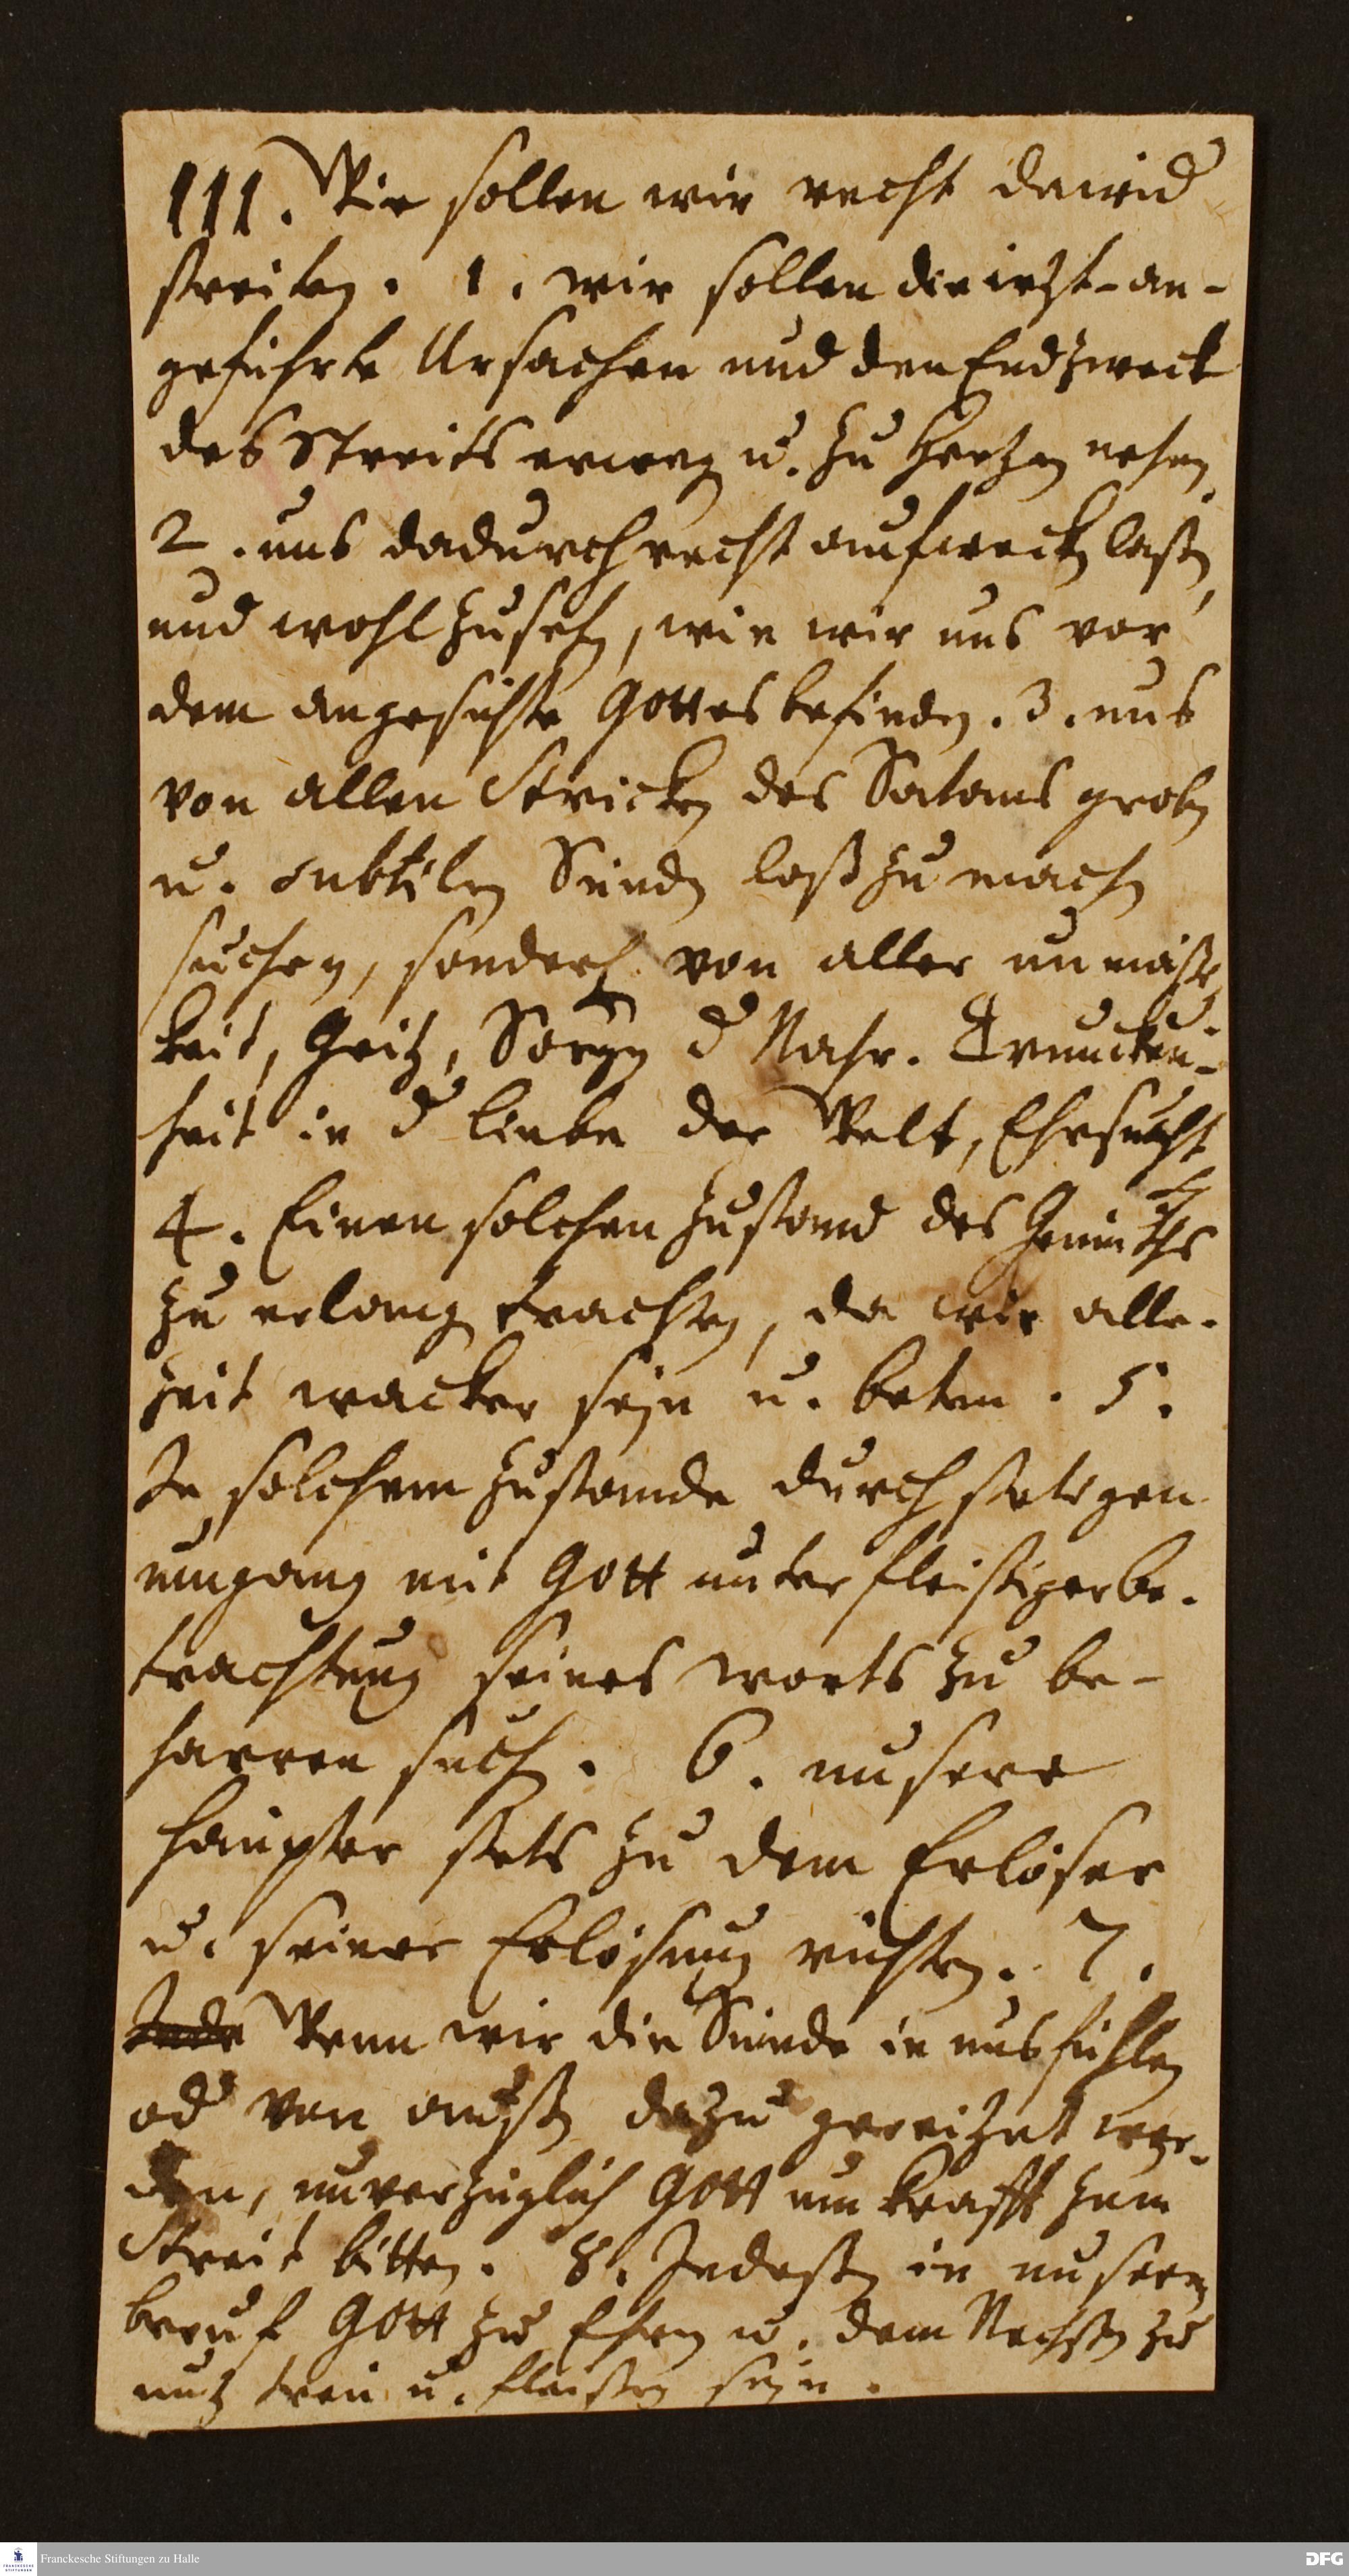 III. Wie sollen wir recht dawid
streiten. 1. wir sollen die ietzt-an-
geführte Ursachen und den Endzweck
des Streits erwegen u. zu Hertzen nehmen,
2. uns dadurch recht aufwecken laßen,
und wohl zusehen, wie wir uns vor
dem angesichte Gottes befinden. 3. uns
von allen Stricken des Satans groben
u. subtilen Sünden loßzumachen
suchen, sonderl. von aller unmäßig-
keit, Geitz, Sorgen d Nahr. Truncken-
heit in d Liebe der Welt, Ehrsucht
4. Einen solchen Zustand des Gemüths
zu erlangen trachten, da wir alle-
zeit wacker seyn u. beten. 5.
In solchem Zustande durch stetigen
umgang mit Gott unter fleißiger be-
trachtung seines worts zu be-
harren suchen. 6. unsere
Häupter stets zu dem Erlöser
u. seiner Erlösung richten. 7.
Jede Wenn wir die Sünde in uns fühlen
od von außen dazu gereitzet wer-
den, unverzüglich Gott um Krafft zum
Streit bitten. 8. Indeßen in unserm
beruf Gott zu Ehren u. dem Nechsten zu
nutz treu u. fleißig seyn.
Franckesche Stiftungen zu Halle
FRANCKESCHE STIFTUNGEN
DFG